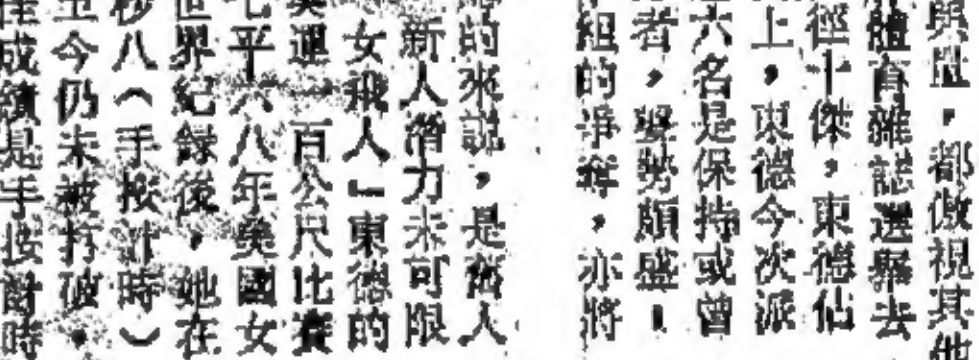 與監，都傲視其他
體育雜誌選舉去
徑十傑，東德佔
上，東德今次派
六名是保持或曾
者，聲勢頗盛！
組的爭奪，亦將
的來說，是舊人
新人潛力未可限
女飛人」東德的
奧運一百公尺比賽
七平六八年美國女
世界紀錄後，她在
秒八（手按計時）
至今仍未被打破。
佳成績是手按計時